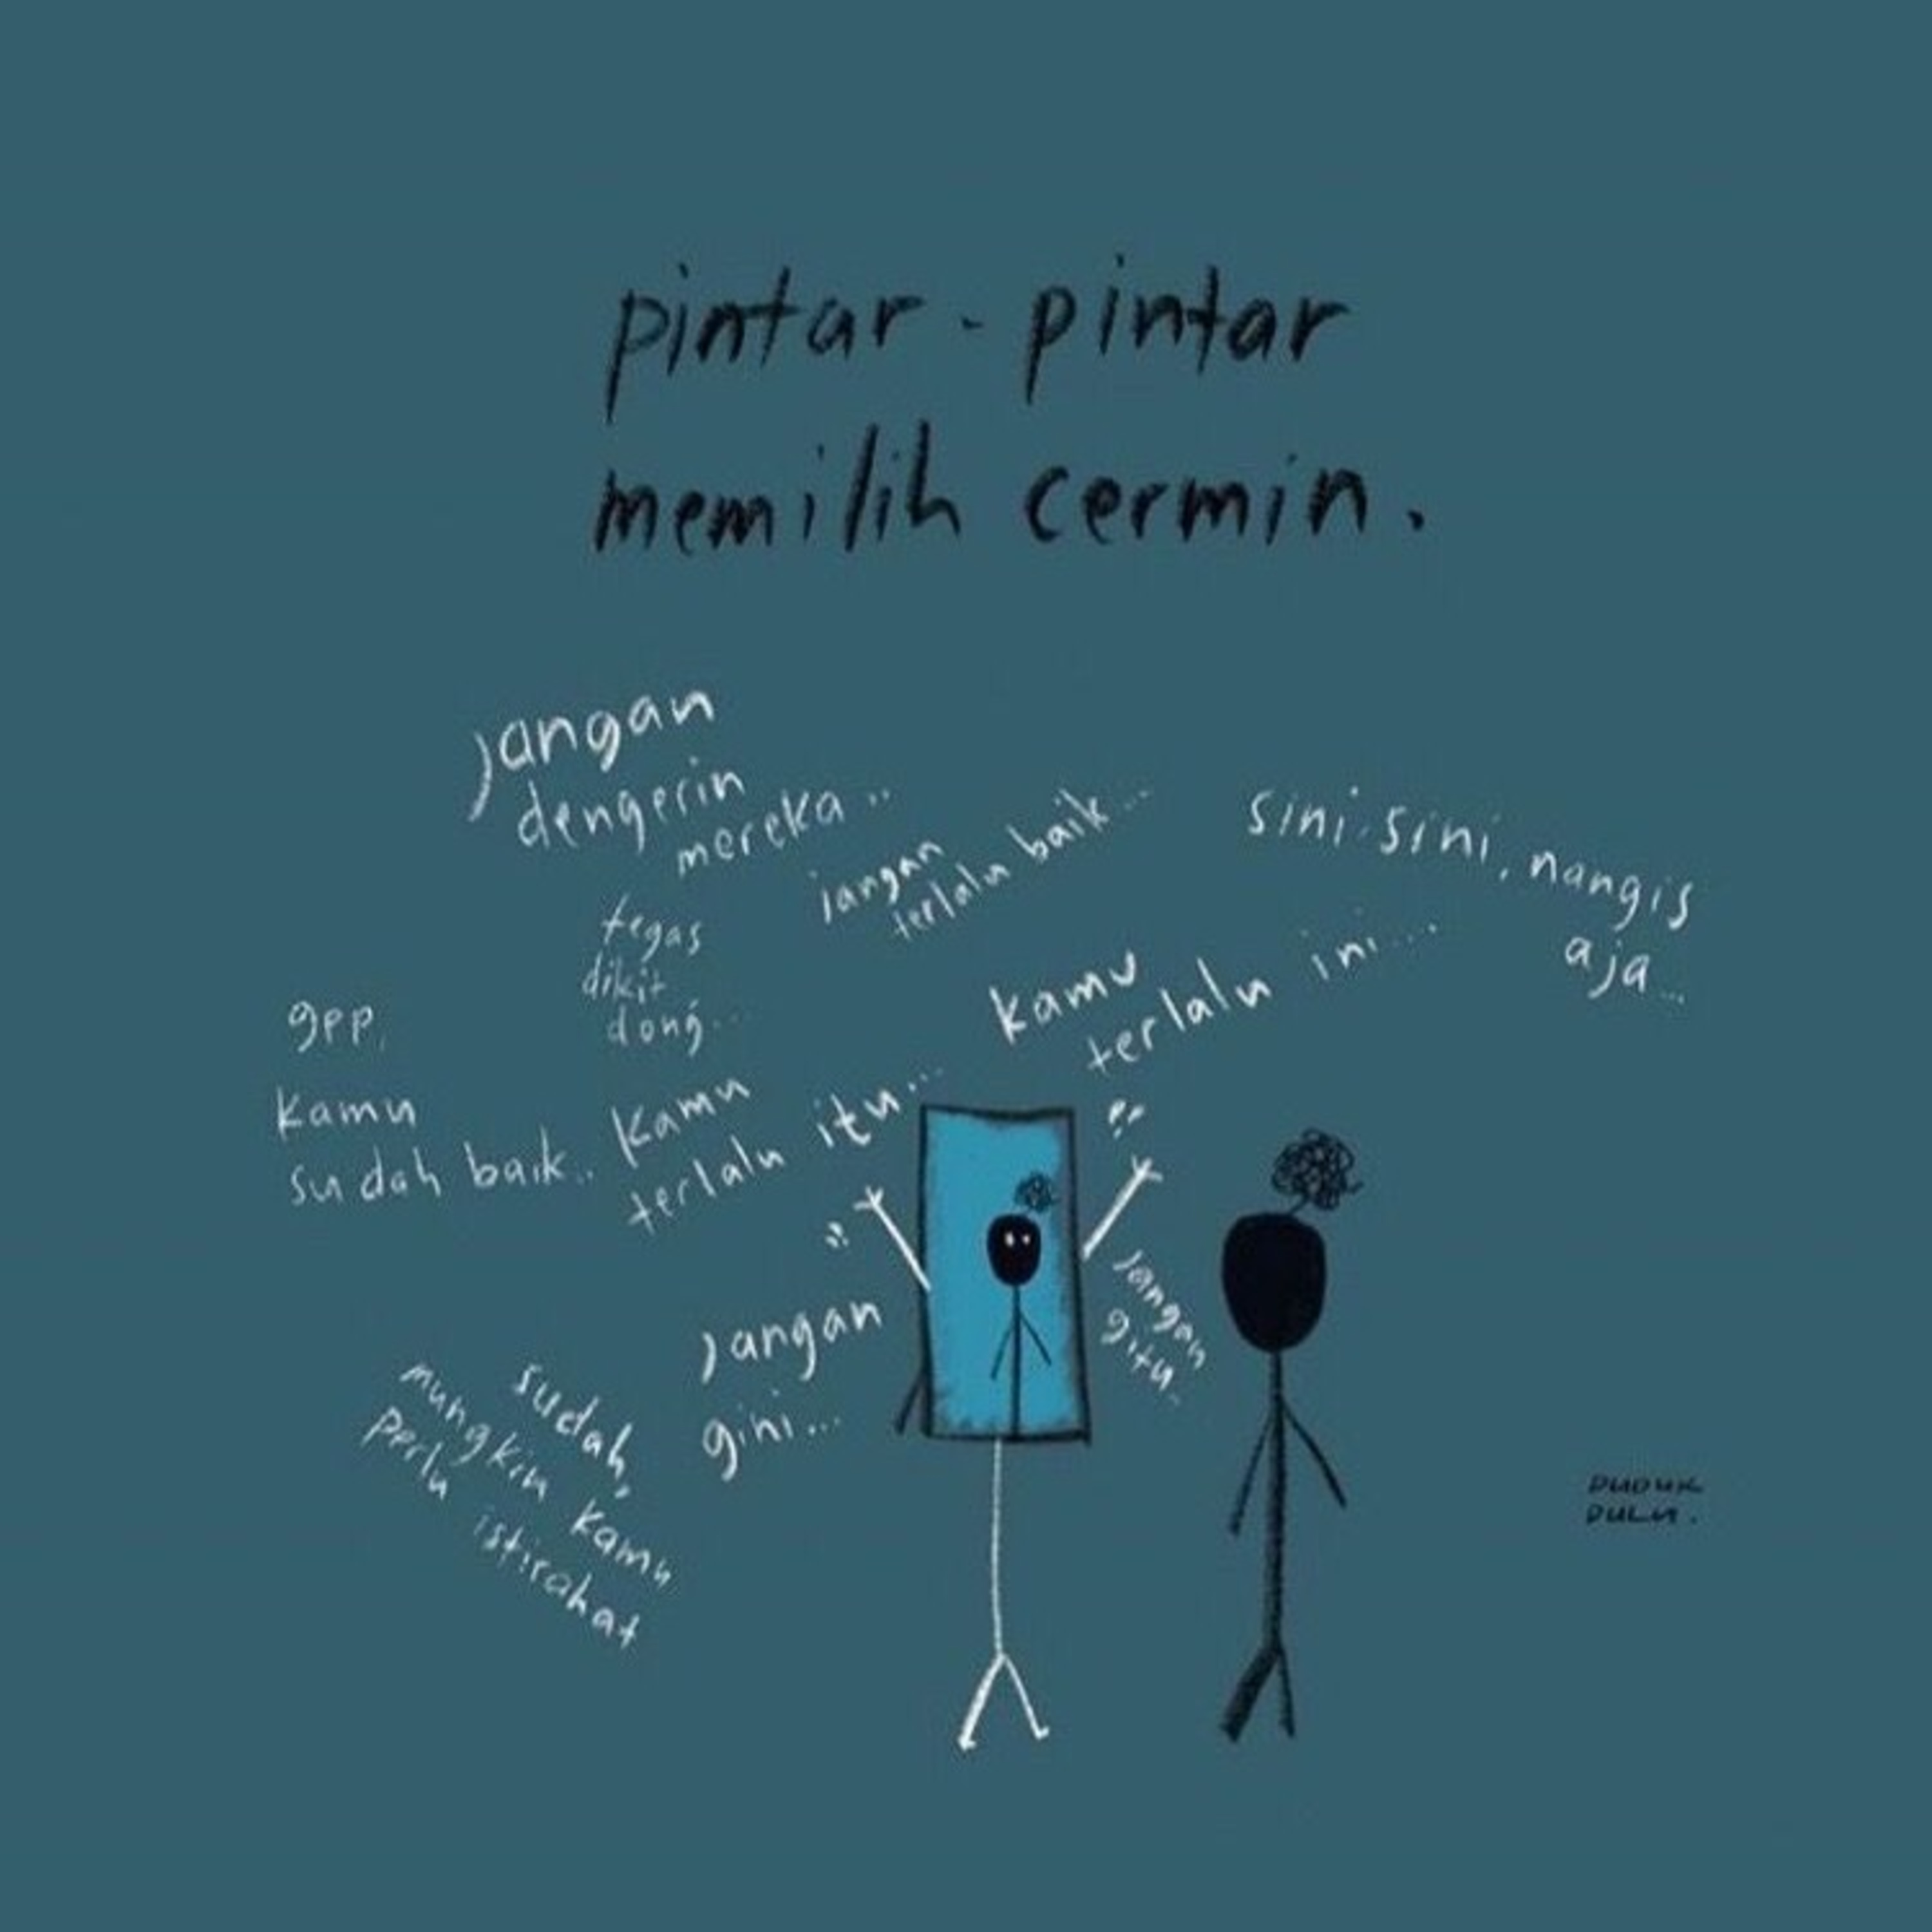 pintar-pintar
memilih cermin.
Jangan
dengerin
mereka..
jangan
terlalu baik...
sini-sini, nangis
aja...
tegas
dikit
dong...
kamu
terlalu ini...
gpp,
kamu
sudah baik..
kamu
terlalu itu...
Jangan
gini...
Jangan
gitu..
sudah,
mungkin kamu
perlu istirahat
DUDUK
DULU.